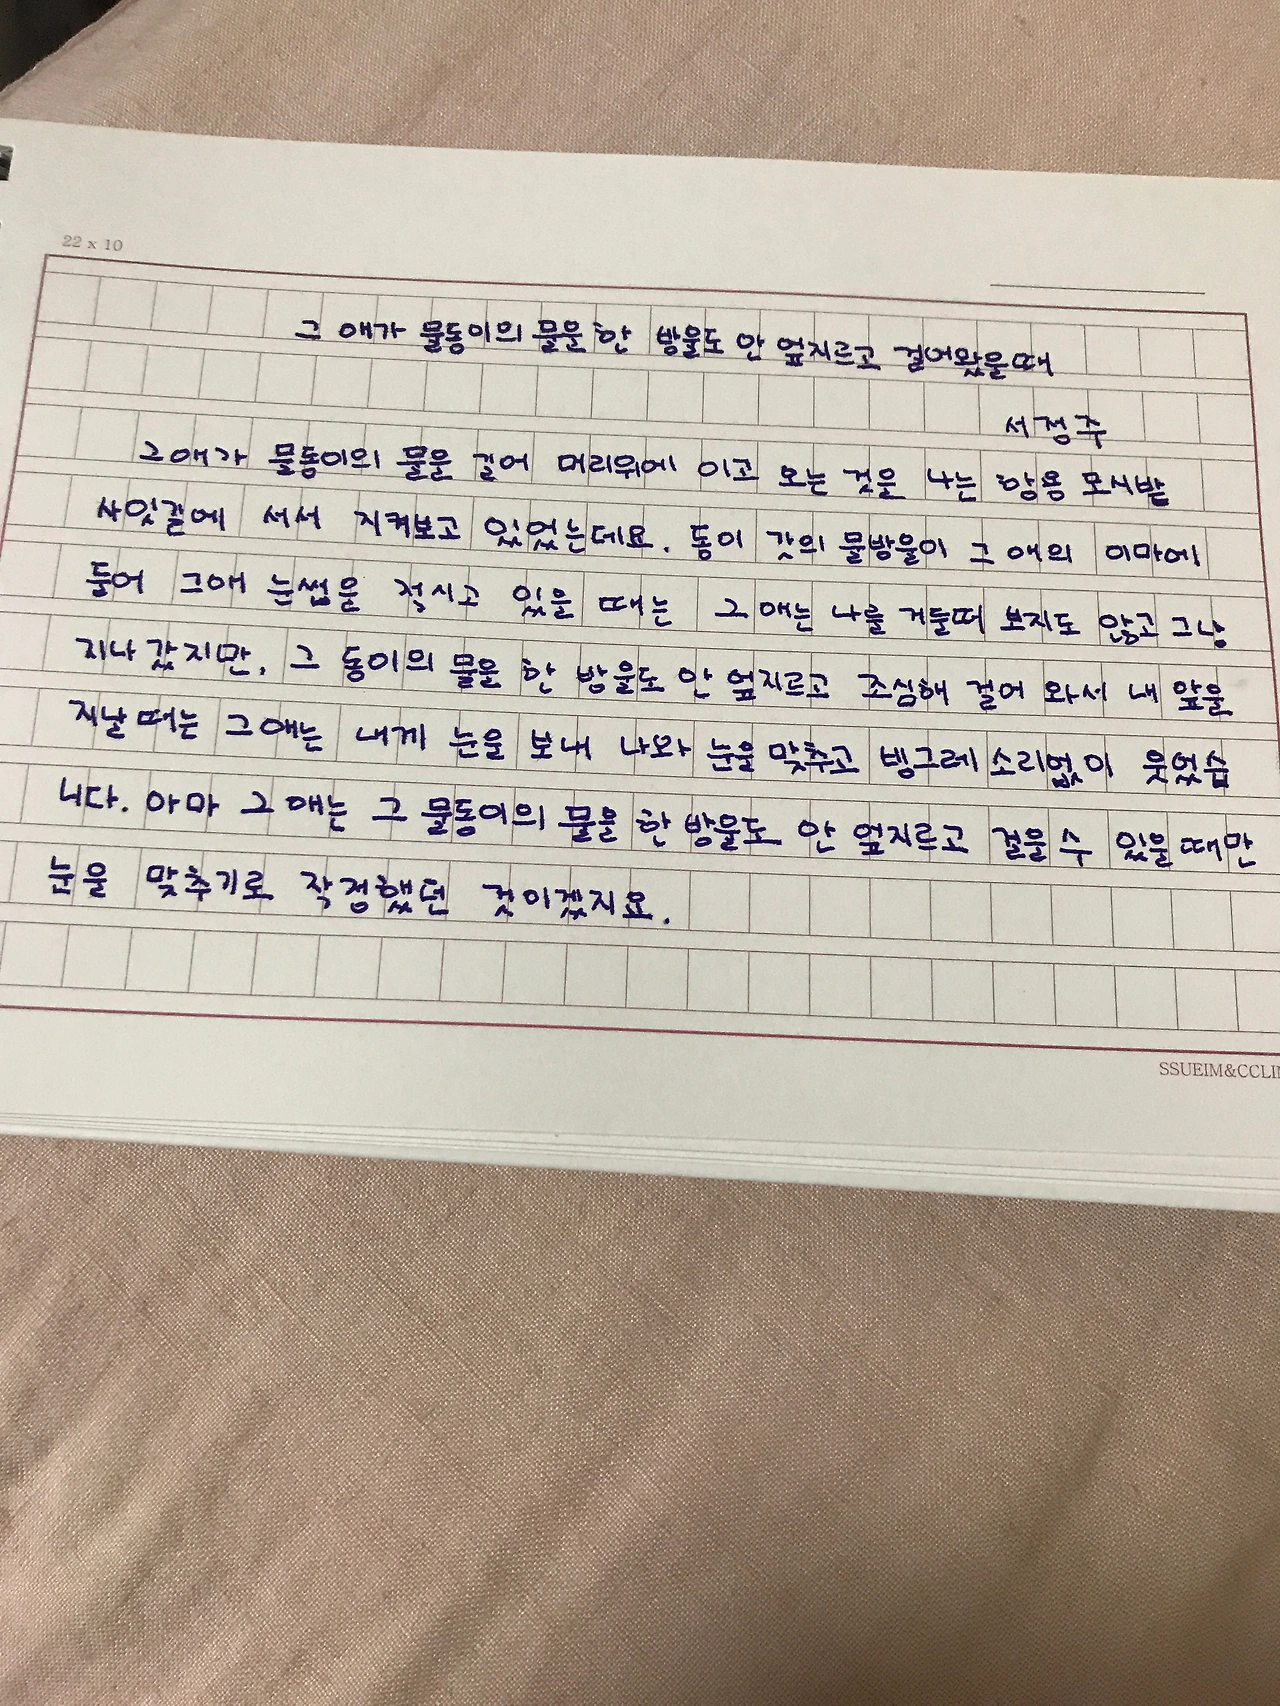 22 x 10
그 애가 물동이의 물을 한 방울도 안 엎지르고 걸어왔을때
서정주
그애가 물동이의 물을 길어 머리위에 이고 오는 것을 나는 항용 모시밭
사잇길에 서서 지켜보고 있었는데요. 동이 갓의 물방울이 그 애의 이마에
들어 그애 눈썹을 적시고 있을 때는 그 애는 나를 거들떠 보지도 않고 그냥
지나 갔지만, 그 동이의 물을 한 방울도 안 엎지르고 조심해 걸어 와서 내 앞을
지날 때는 그애는 내게 눈을 보내 나와 눈을 맞추고 빙그레 소리없이 웃었습
니다. 아마 그 애는 그 물동이의 물을 한 방울도 안 엎지르고 걸을 수 있을 때만
눈을 맞추기로 작정했던 것이겠지요.